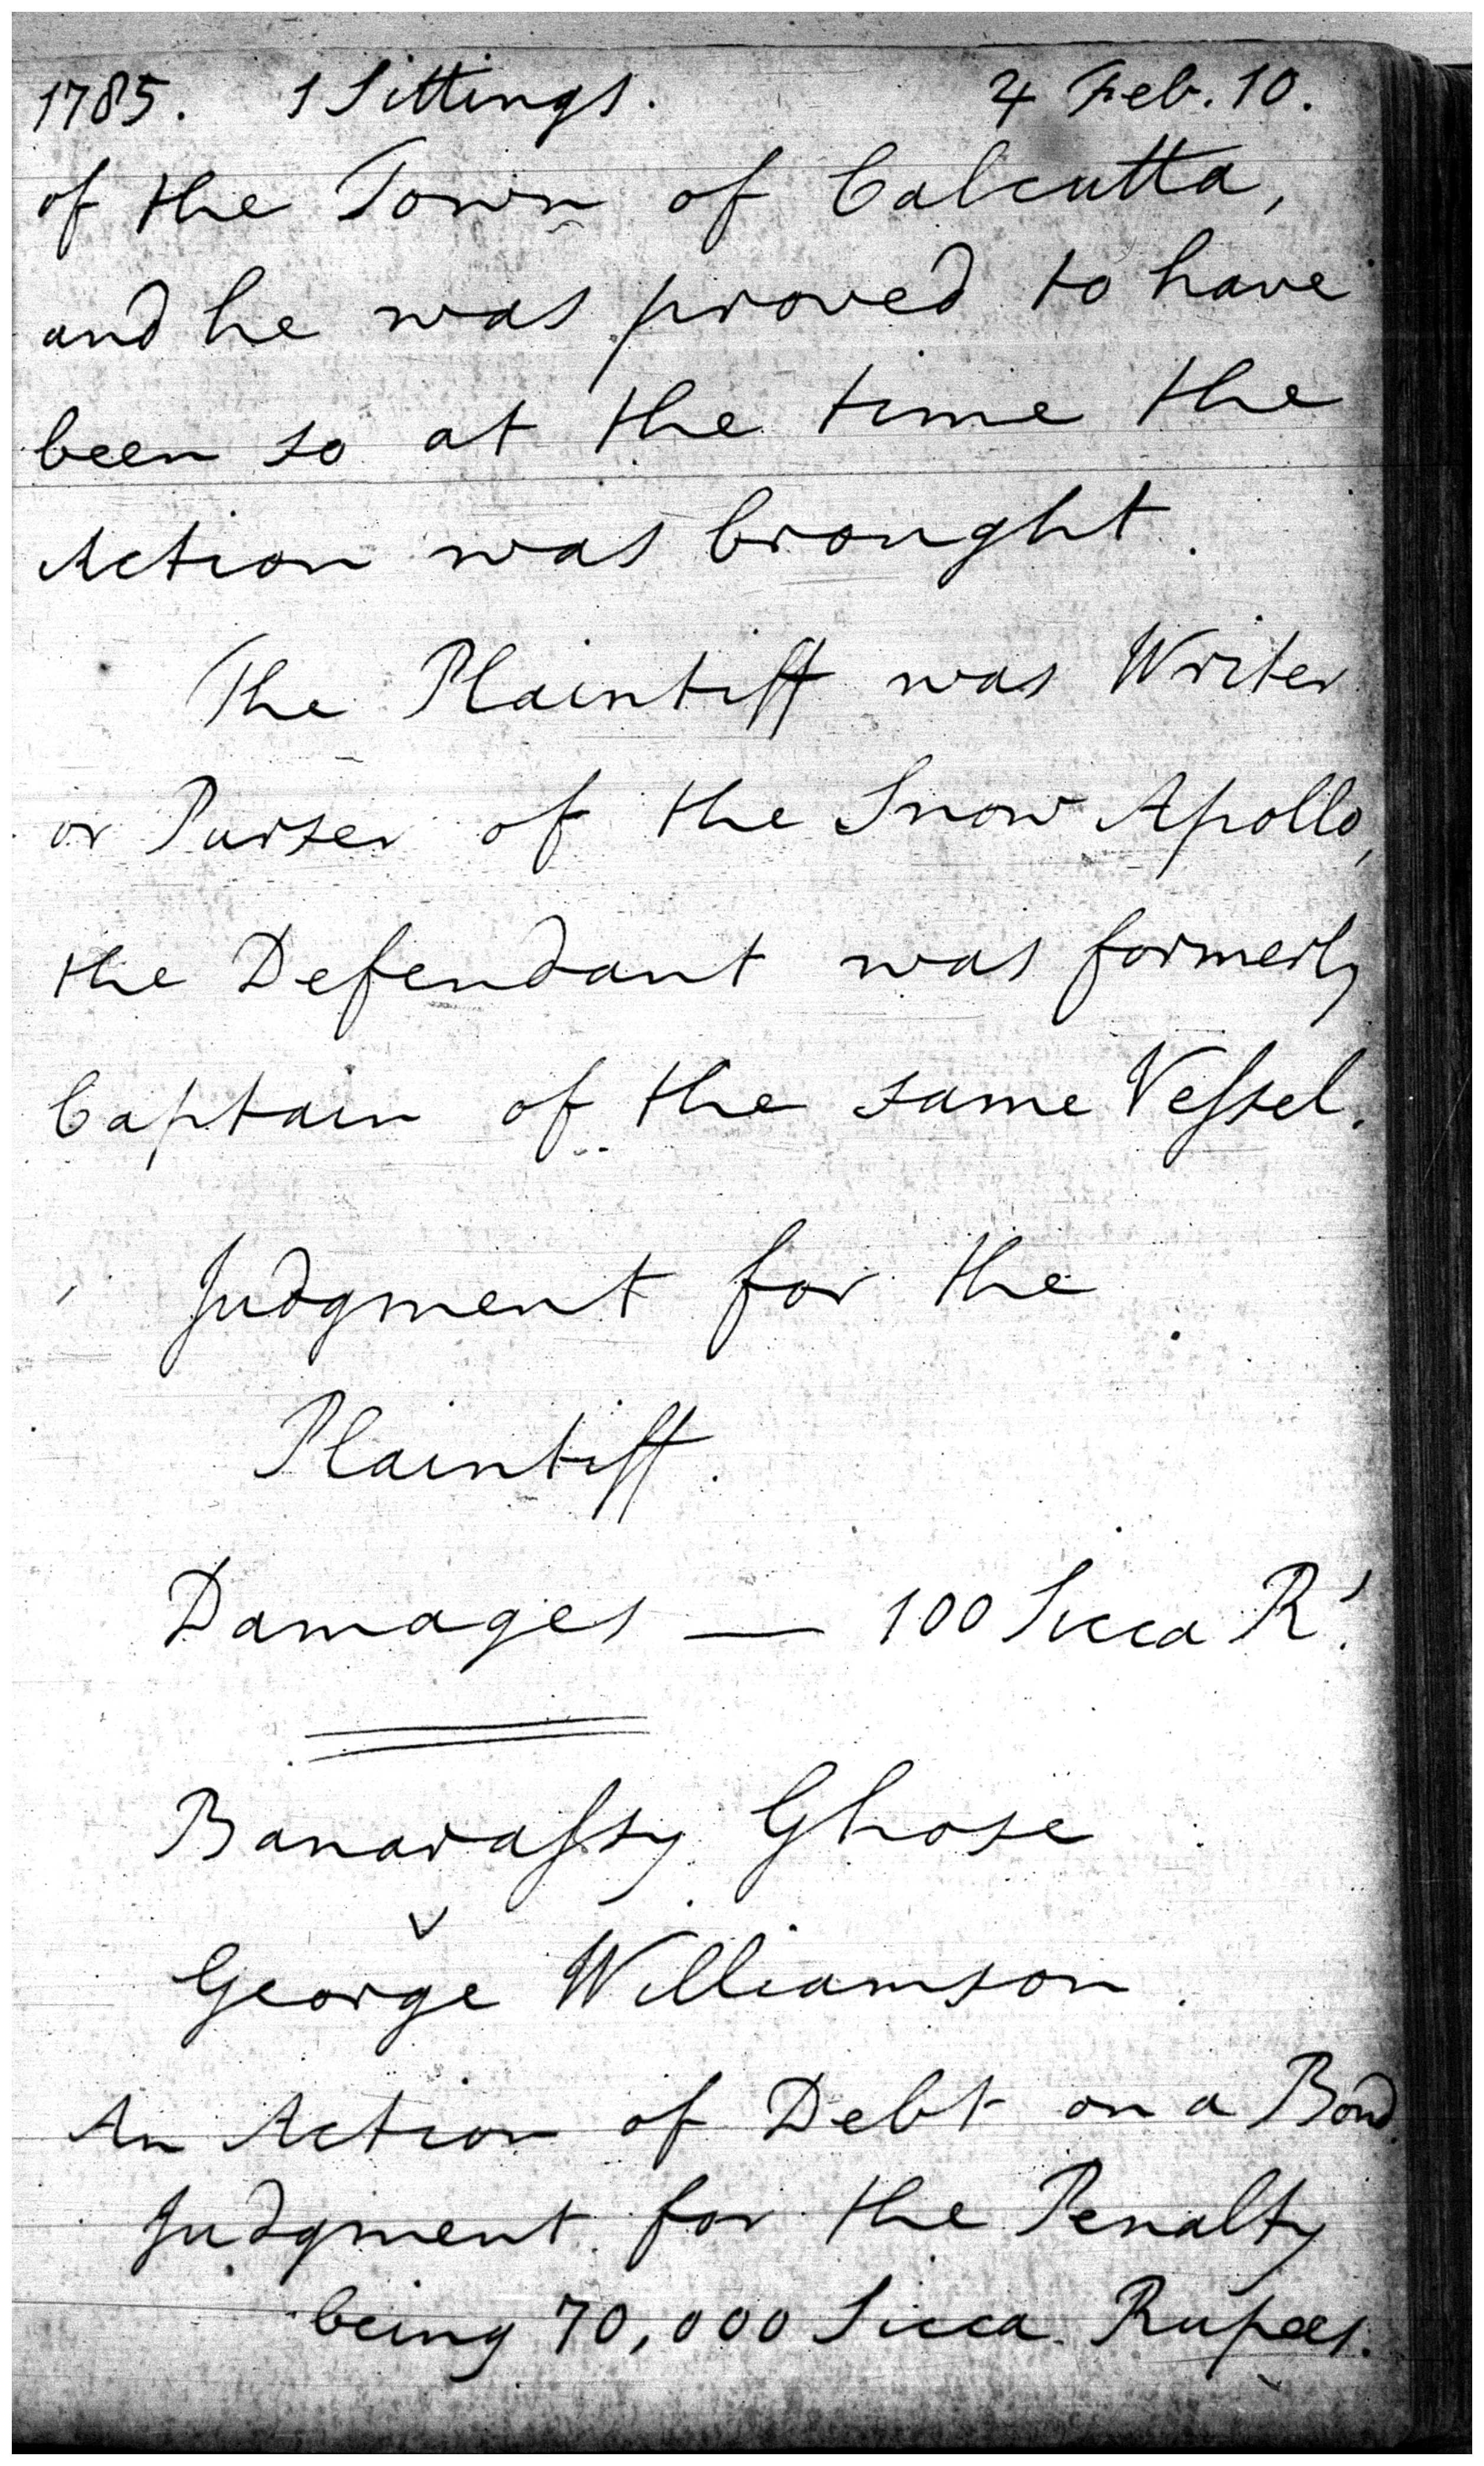 1785. 1 Sittings. 4 Feb. 10.
of the Town of Calcutta,
and he was proved to have
been so at the time the
Action was brought.
The Plaintiff was Writer
or Purser of the Snow Apollo,
the Defendant was formerly
Captain of the same Veſsel.
Judgment for the
Plaintiff.
Damages — 100 Sicca Rs.
Banaraſsy Ghose
v
George Williamson.
An Action of Debt on a Bond.
Judgment for the Penalty
being 70,000 Sicca Rupees.